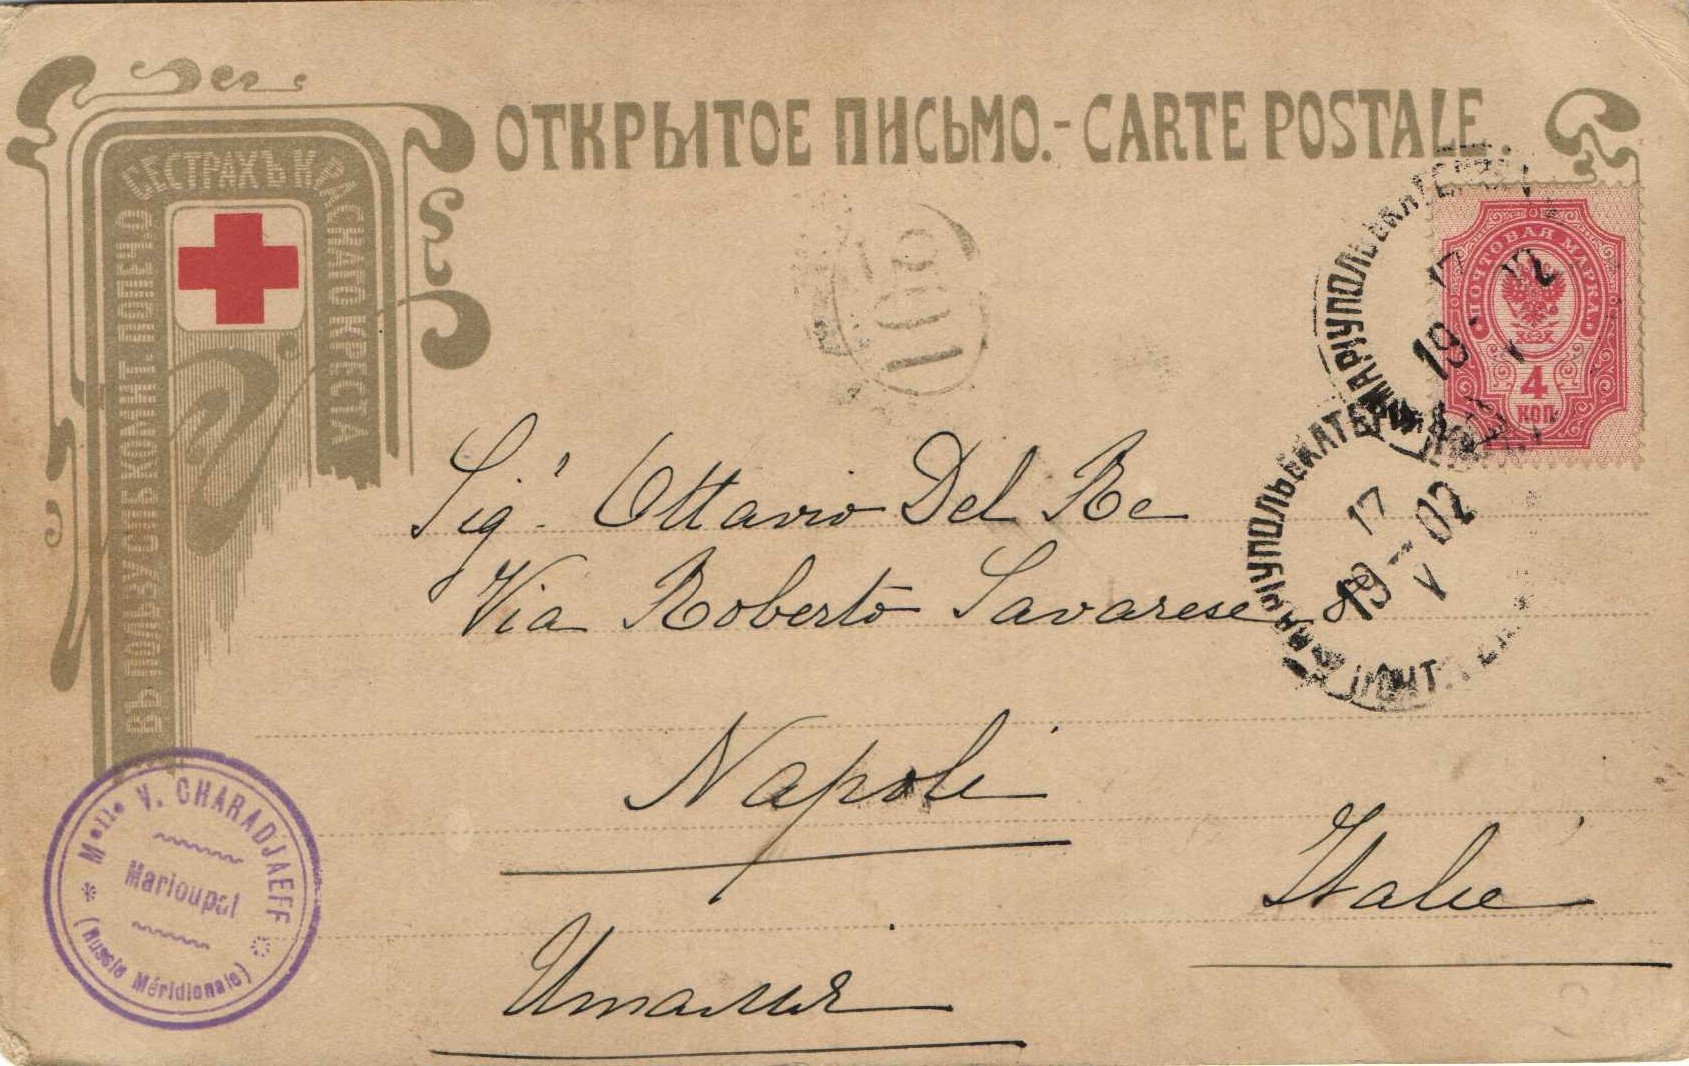 ОТКРЫТОЕ ПИСЬМО.-CARTE POSTALE
ВЪ ПОЛЬЗУ СПБ КОМИТ. ПОПЕЧ. О СЕСТРАХЪ КРАСНАГО КРЕСТА
103
ПОЧТОВАЯ МАРКА
4
КОП
МАРІУПОЛЬ ЕКАТЕР
17
19 02
V
МАРІУПОЛЬ ЕКАТЕРИ
17
19-02
V
ПОЧТ
Sigr. Ottavio Del Re
Via Roberto Savarese 8
Napoli
Italie
Италия
Melle V. CHARADJAEFF
Marioupol
(Russie Méridionale)